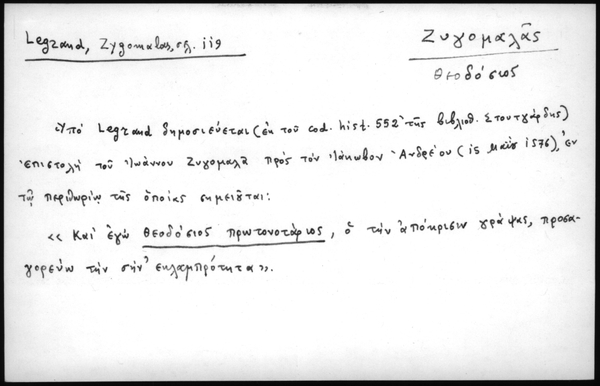 Legrand, Zygomalas, σελ. 119
Ζυγομαλᾶς
Θεοδόσιος
Ὑπό Legrand δημοσιεύεται (ἐκ τοῦ cod. hist. 552 τῆς βιβλιοθ. Στουτγάρδης)
ἐπιστολή τοῦ Ἰωάννου Ζυγομαλᾶ πρός τόν Ἰάκωβον Ἀνδρέου (15 Μαΐου 1576), ἐν
τῷ περιθωρίῳ τῆς ὁποίας σημειοῦται:
«Καί ἐγώ Θεοδόσιος πρωτονοτάριος, ὁ τήν ἀπόκρισιν γράψας, προσα-
γορεύω τήν σήν ἐκλαμπρότητα».